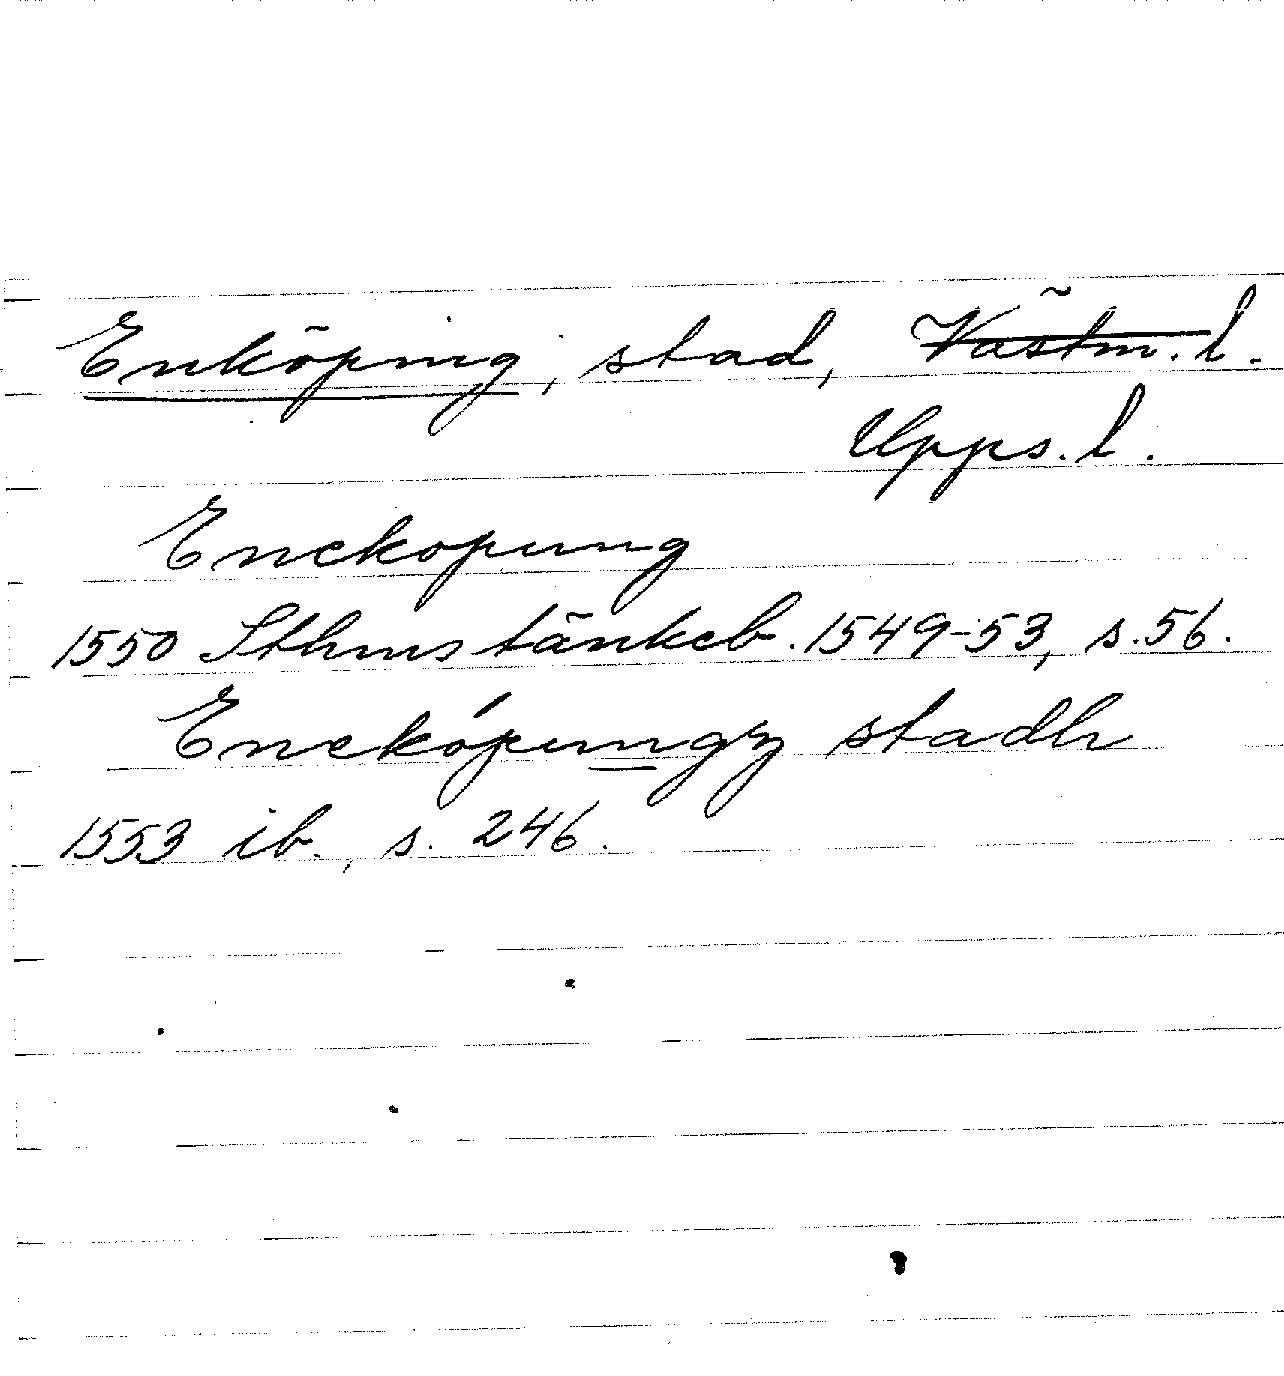 Enköping, stad, Västm. l.
Upps. l.
Enekopung
1550 Sthms tänkeb. 1549-53, s. 56.
Eneköpungz stadh
1553 ib., s. 246.